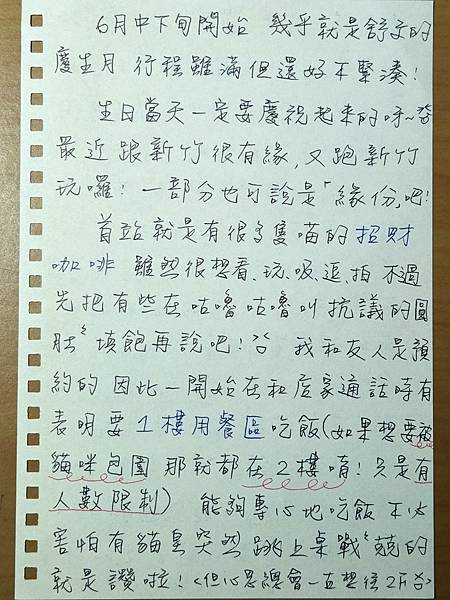 6月中下旬開始 幾乎就是舒文的
慶生月 行程雖滿但還好不緊湊!
生日當天一定要慶祝起來的呀~
最近跟新竹很有緣,又跑新竹
玩囉! 一部分也可說是「緣份」吧!
首站就是有很多隻喵的招財
咖啡 雖然很想看、玩、吸、逗、拍 不過
先把有些在咕嚕咕嚕叫抗議的圓
肚填飽再說吧! 我和友人是預
約的 因此一開始在和店家通話時有
表明要1樓用餐區吃飯(如果想要被
貓咪包圍 那就都在2樓唷!只是有
人數限制) 能夠專心地吃飯 不必
害怕有貓皇突然跳上桌戰競的
就是讚啦!(但心思總會一直想往2F